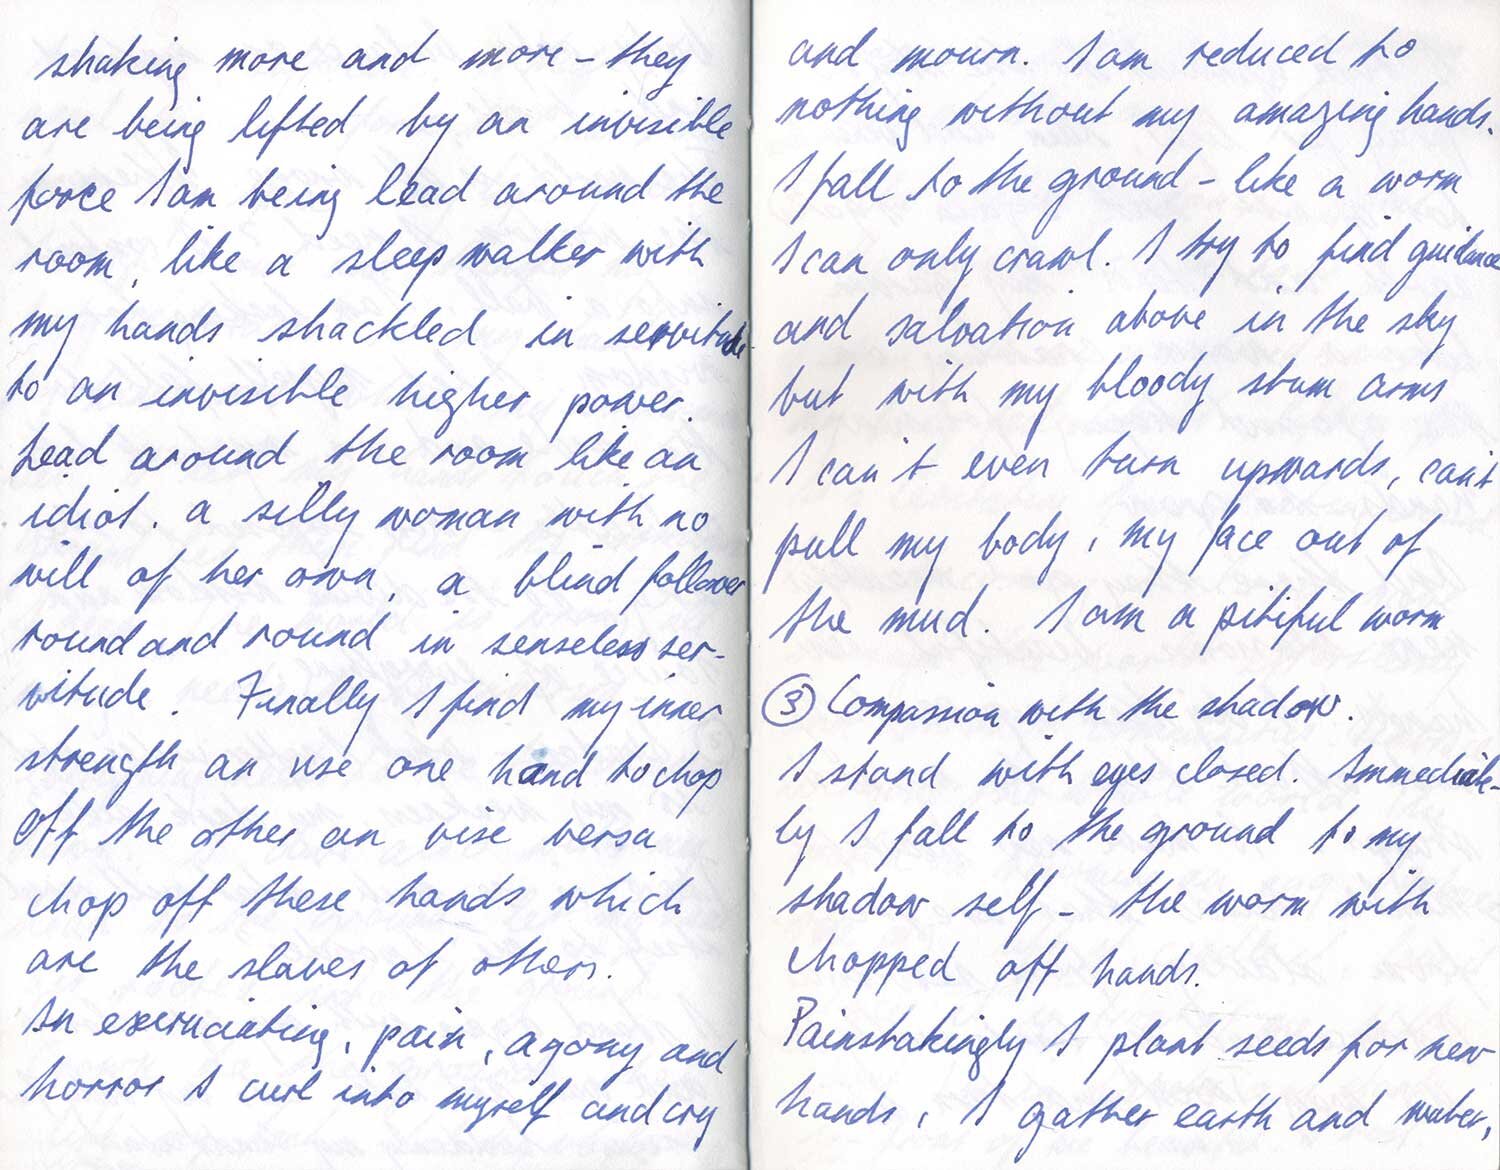 shaking more and more – they
are being lifted by an invisible
force I am being lead around the
room, like a sleep walker with
my hands shackled in servitude
to an invisible higher power.
Lead around the room like an
idiot. a silly woman with no
will of her own, a blind follower
round and round in senseless ser-
vitude. Finally I find my inner
strength an use one hand to chop
off the other an vise versa
chop off these hands which
are the slaves of others.
In excruciating, pain, agony and
horror I curl into myself and cry
and mourn. I am reduced to
nothing without my amazing hands.
I fall to the ground – like a worm
I can only crawl. I try to find guidance
and salvation above in the sky
but with my bloody stum arms
I can't even turn upwards, can't
pull my body, my face out of
the mud. I am a pitiful worm
③ Compassion with the shadow.
I stand with eyes closed. Immediate-
ly I fall to the ground to my
shadow self – the worm with
chopped off hands.
Painstakingly I plant seeds for new
hands, I gather earth and water,